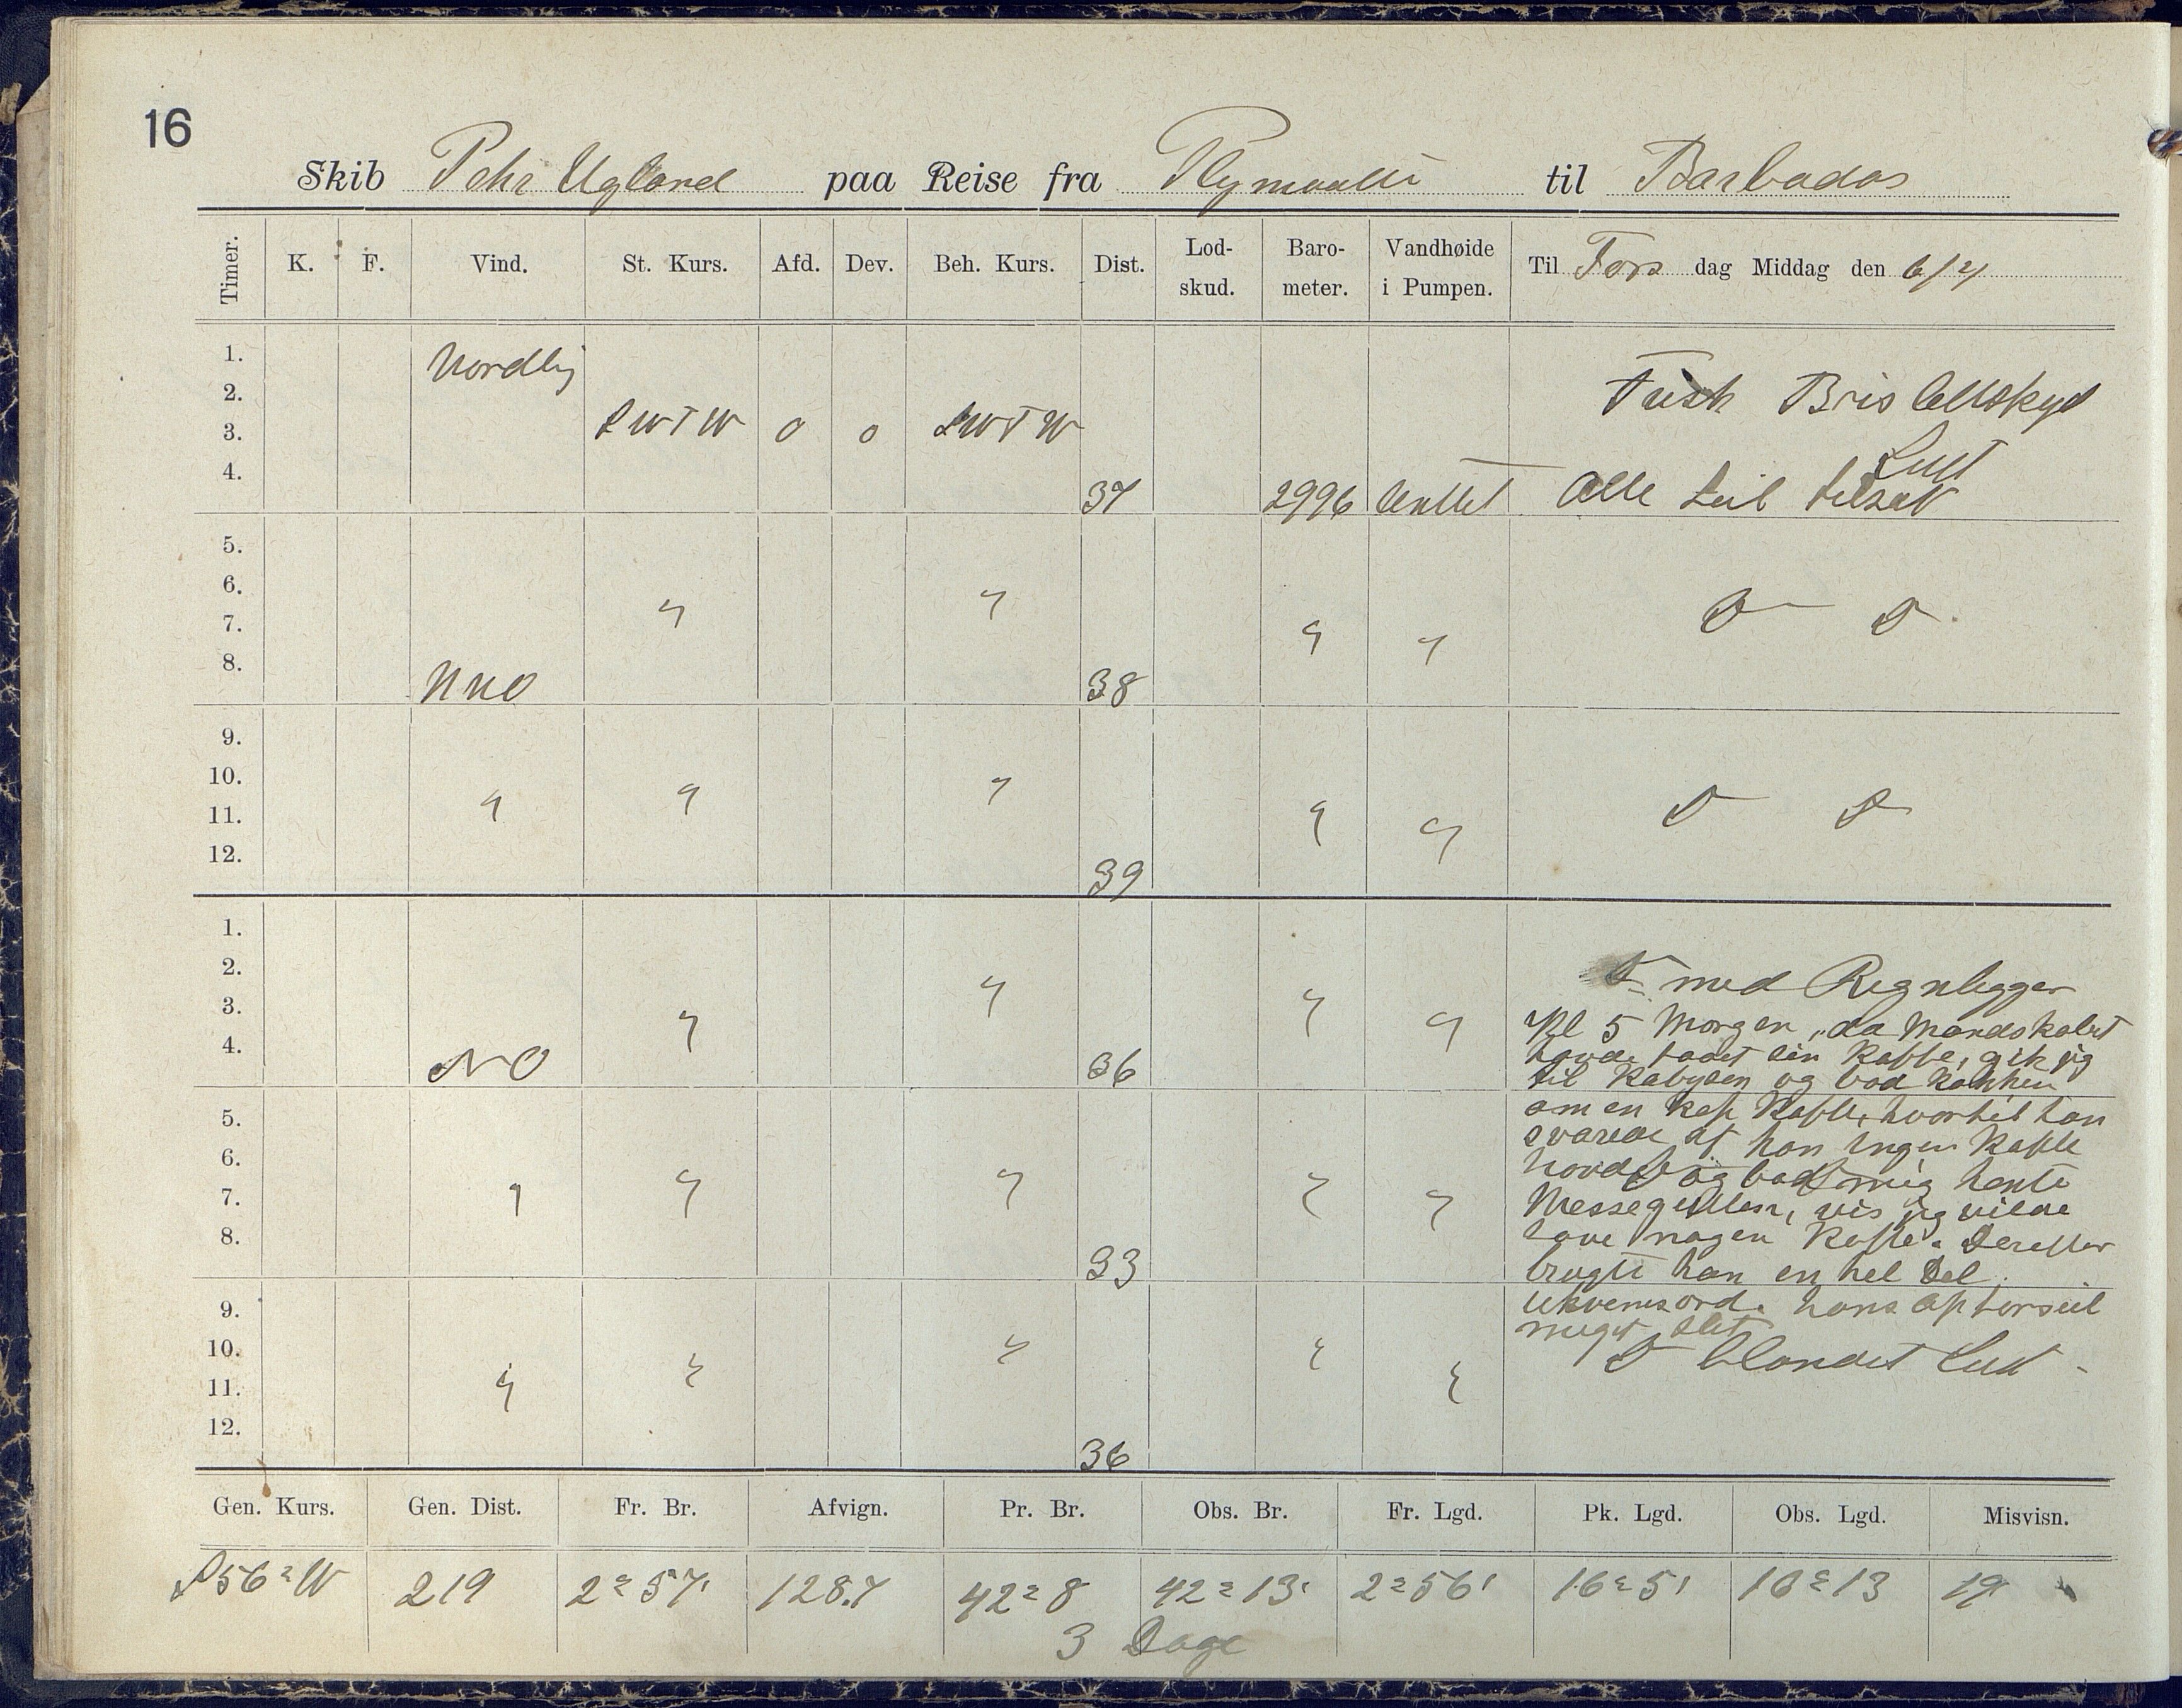 16
Skib Pehr Ugland paa Reise fra Plymouth til Barbados
Timer. K. F. Vind. St. Kurs. Afd. Dev. Beh. Kurs. Dist. Lod-skud. Baro-meter. Vandhøide i Pumpen. Til Tors dag Middag den 6/4
1. Nordlig
2. Frisk Bris Ulskyet
3. SWTW 0 0 SWTW Luft
4. 37 2996 Lenset Alle Seil tilsat
5.
6. " " D D
7. " "
8. NNO 38
9.
10. "
11. " " " " D D
12. 39
1.
2. " " D med Regnbygger
3. " " Kl 5 Morgen, da Mandskabet
4. NO 36 havde faaet sin Kaffe, gik jeg
til Kabysen og bad Kokken
5. om en Kop Kaffe, hvortil han
svarede at han ingen Kaffe
6. havde og bad mig hente
7. " " " " " Messegutten, vis jeg vilde
8. have nogen Kaffe. Derefter
33 brugte han en hel Del
9. Ukvemsord. hans Opførseil
meget slet
10. " " D blandet Luft
11. " " "
12. 36
Gen. Kurs. Gen. Dist. Fr. Br. Afvign. Pr. Br. Obs. Br. Fr. Lgd. Pk. Lgd. Obs. Lgd. Misvisn.
S56°W 219 2°57' 128.7 42°8 42°13' 2°56' 16°51 16°13 19
3 Dage